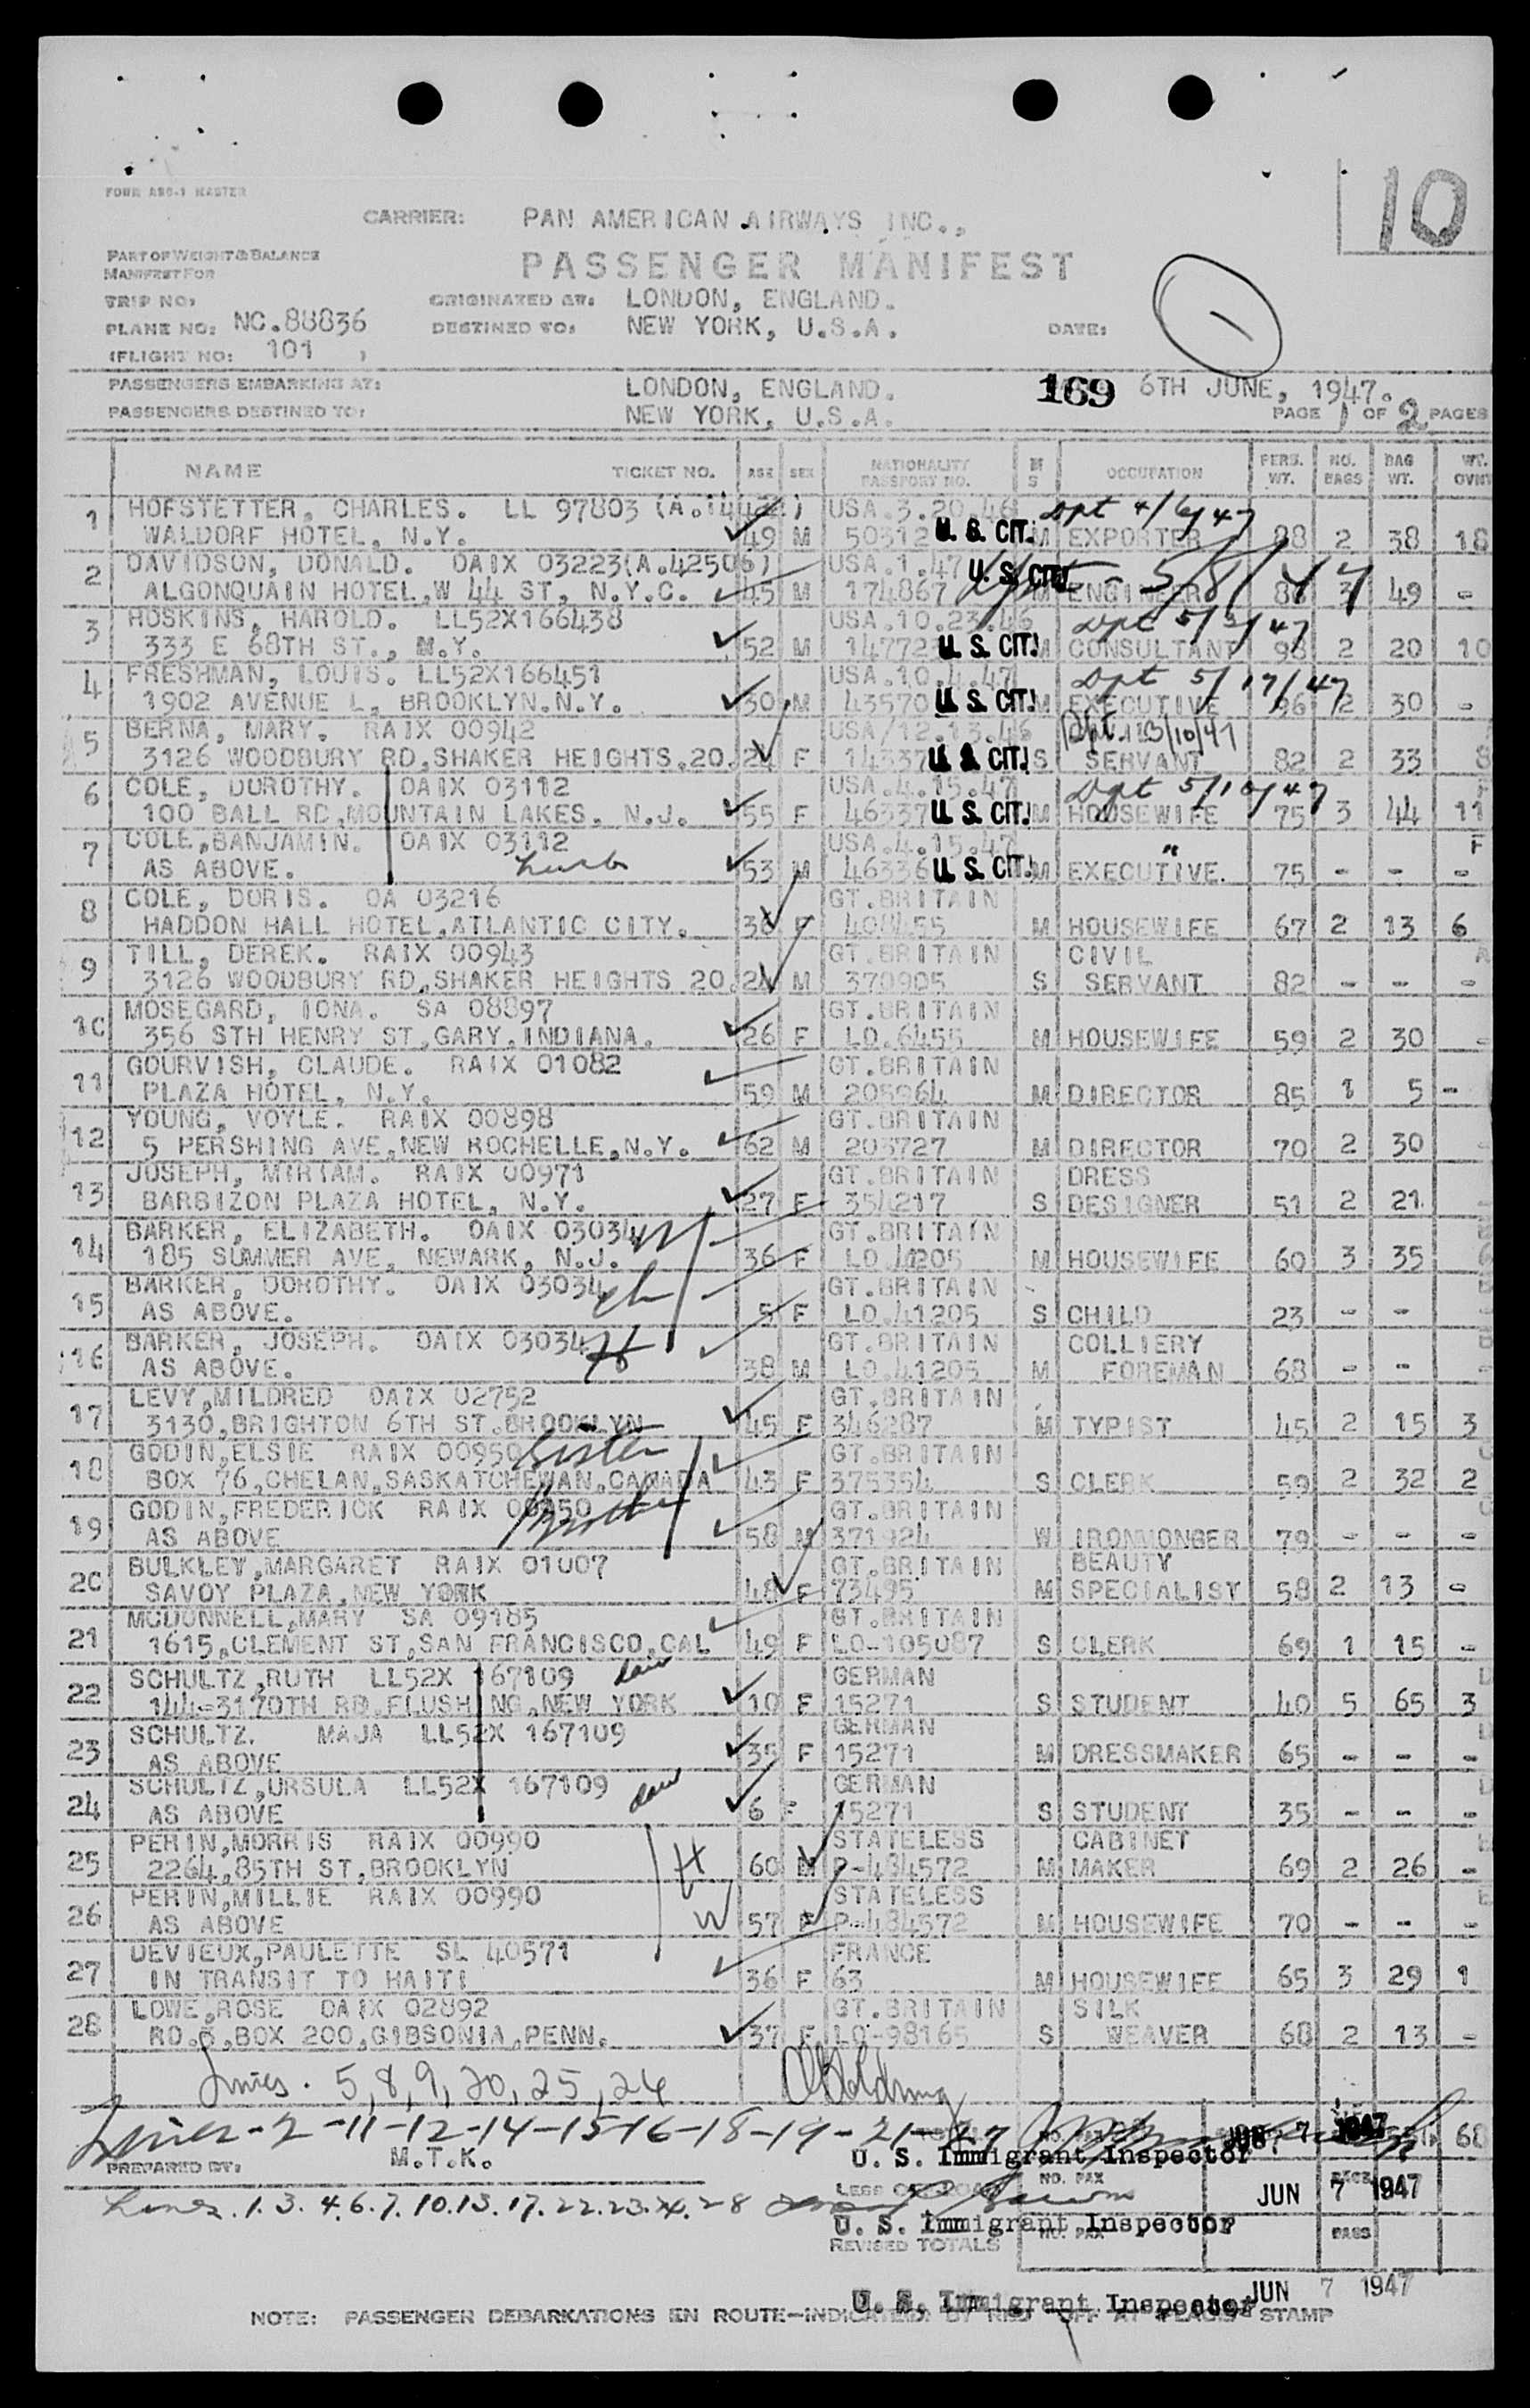 FORM ABS-1 MASTER
10
CARRIER: PAN AMERICAN AIRWAYS INC.,
PART OF WEIGHT & BALANCE
MANIFEST FOR
PASSENGER MANIFEST
TRIP NO: ORIGINATED AT: LONDON, ENGLAND.
PLANE NO: NC.88836 DESTINED TO: NEW YORK, U.S.A. DATE:
(FLIGHT NO: 101 )
PASSENGERS EMBARKING AT: LONDON, ENGLAND. 169 6TH JUNE, 1947.
PASSENGERS DESTINED TO: NEW YORK, U.S.A. PAGE 1 OF 2 PAGES
NAME TICKET NO. AGE SEX NATIONALITY PASSPORT NO. M S OCCUPATION PERS. WT. NO. BAGS BAG WT. WT. OVWT
1 HOFSTETTER, CHARLES. LL 97803 USA.3.20.46 Dpt 4/6/47
WALDORF HOTEL, N.Y. 49 M 50312 U. S. CIT. M EXPORTER 88 2 38 18
2 DAVIDSON, DONALD. OAIX 03223(A.42506) USA.1.47 U. S. CIT. 5/8/47
ALGONQUAIN HOTEL,W 44 ST, N.Y.C. 45 M 174867 M ENGINEER 3 49 -
3 HOSKINS, HAROLD. LL52X166438 USA.10.23.46 Dpt 5/2/47
333 E 68TH ST., N.Y. 52 M 14772 U. S. CIT. M CONSULTANT 98 2 20 10
4 FRESHMAN, LOUIS. LL52X166451 USA.10.4.47 Dpt 5/17/47
1902 AVENUE L, BROOKLYN.N.Y. 30 M 43570 U. S. CIT. M EXECUTIVE 96 2 30 -
5 BERNA, MARY. RAIX 00942 USA/12.13.46
3126 WOODBURY RD,SHAKER HEIGHTS.20. 24 F 14337 U. S. CIT. S SERVANT 82 2 33 8
6 COLE, DOROTHY. OAIX 03112 USA.4.15.47 Dpt 5/10/47
100 BALL RD,MOUNTAIN LAKES. N.J. 55 F 46337 U. S. CIT. M HOUSEWIFE 75 3 44 11
7 COLE,BANJAMIN. OAIX 03112 USA.4.15.47 " F
AS ABOVE. husb 53 M 46336 U. S. CIT. M EXECUTIVE. 75 - - -
8 COLE, DORIS. OA 03216 GT.BRITAIN
HADDON HALL HOTEL,ATLANTIC CITY. 36 F 408455 M HOUSEWIFE 67 2 13 6
9 TILL, DEREK. RAIX 00943 GT.BRITAIN CIVIL
3126 WOODBURY RD,SHAKER HEIGHTS 20. 24 M 370905 S SERVANT 82 - - -
10 MOSEGARD, IONA. SA 08897 GT.BRITAIN
356 STH HENRY ST,GARY,INDIANA. 26 F LO.6455 M HOUSEWIFE 59 2 30 -
11 GOURVISH, CLAUDE. RAIX 01082 GT.BRITAIN
PLAZA HOTEL, N.Y. 59 M 205964 M DIRECTOR 85 1 5 -
12 YOUNG, VOYLE. RAIX 00898 GT.BRITAIN
5 PERSHING AVE,NEW ROCHELLE,N.Y. 62 M 203727 M DIRECTOR 70 2 30
13 JOSEPH, MIRIAM. RAIX 00971 GT.BRITAIN DRESS
BARBIZON PLAZA HOTEL, N.Y. 27 F 354217 S DESIGNER 51 2 21
14 BARKER, ELIZABETH. OAIX 03034 W GT.BRITAIN
185 SUMMER AVE, NEWARK, N.J. 36 F LO.41205 M HOUSEWIFE 60 3 35
15 BARKER, DOROTHY. OAIX 03034 ch GT.BRITAIN
AS ABOVE. 5 F LO.41205 S CHILD 23 - -
16 BARKER, JOSEPH. OAIX 03034 H GT.BRITAIN COLLIERY
AS ABOVE. 38 M LO.41205 M FOREMAN 68 - -
17 LEVY,MILDRED OAIX 02752 GT.BRITAIN
3130,BRIGHTON 6TH ST.BROOKLYN 45 F 346287 M TYPIST 45 2 15 3
18 GODIN,ELSIE RAIX 00950 Sister GT.BRITAIN
BOX 76,CHELAN,SASKATCHEWAN,CANADA 43 F 375354 S CLERK 59 2 32 2
19 GODIN,FREDERICK RAIX 00950 Brother GT.BRITAIN
AS ABOVE 58 M 371924 W IRONMONGER 79 - - -
20 BULKLEY,MARGARET RAIX 01007 GT.BRITAIN BEAUTY
SAVOY PLAZA,NEW YORK 48 F 73495 M SPECIALIST 58 2 13 -
21 MCDONNELL,MARY SA 09185 GT.BRITAIN
1615,CLEMENT ST,SAN FRANCISCO,CAL 49 F LO-105087 S CLERK 69 1 15 -
22 SCHULTZ,RUTH LL52X 167109 dau GERMAN
144-3170TH RD,FLUSHING,NEW YORK 10 F 15271 S STUDENT 40 5 65 3
23 SCHULTZ. MAJA LL52X 167109 GERMAN
AS ABOVE 35 F 15271 M DRESSMAKER 65 - - -
24 SCHULTZ,URSULA LL52X 167109 dau GERMAN
AS ABOVE 6 F 15271 S STUDENT 35 - - -
25 PERIN,MORRIS RAIX 00990 STATELESS CABINET
2264,85TH ST,BROOKLYN H 60 M P-484572 M MAKER 69 2 26 -
26 PERIN,MILLIE RAIX 00990 STATELESS
AS ABOVE W 57 F P-484572 M HOUSEWIFE 70 - - -
27 DEVIEUX,PAULETTE SL 40571 FRANCE
IN TRANSIT TO HAITI 36 F 63 M HOUSEWIFE 65 3 29 1
28 LOWE,ROSE OAIX 02892 GT.BRITAIN SILK
BOX 200,GIBSONIA,PENN. 37 F LO-98165 S WEAVER 68 2 13 -
Lines. 5,8,9,20,25,26
Lines-2-11-12-14-15-16-18-19-21-27 7 1947 68
PREPARED BY: M.T.K. U. S. Immigrant Inspector
NO. PAX JUN 7 1947
Lines.1.3.4.6.7.10.13.17.22.23.24.28
U. S. Immigrant Inspector
REVISED TOTALS NO. PAX BAGS
JUN 7 1947
U. S. Immigrant Inspector
NOTE: PASSENGER DEBARKATIONS EN ROUTE-INDICATED BY STAMP